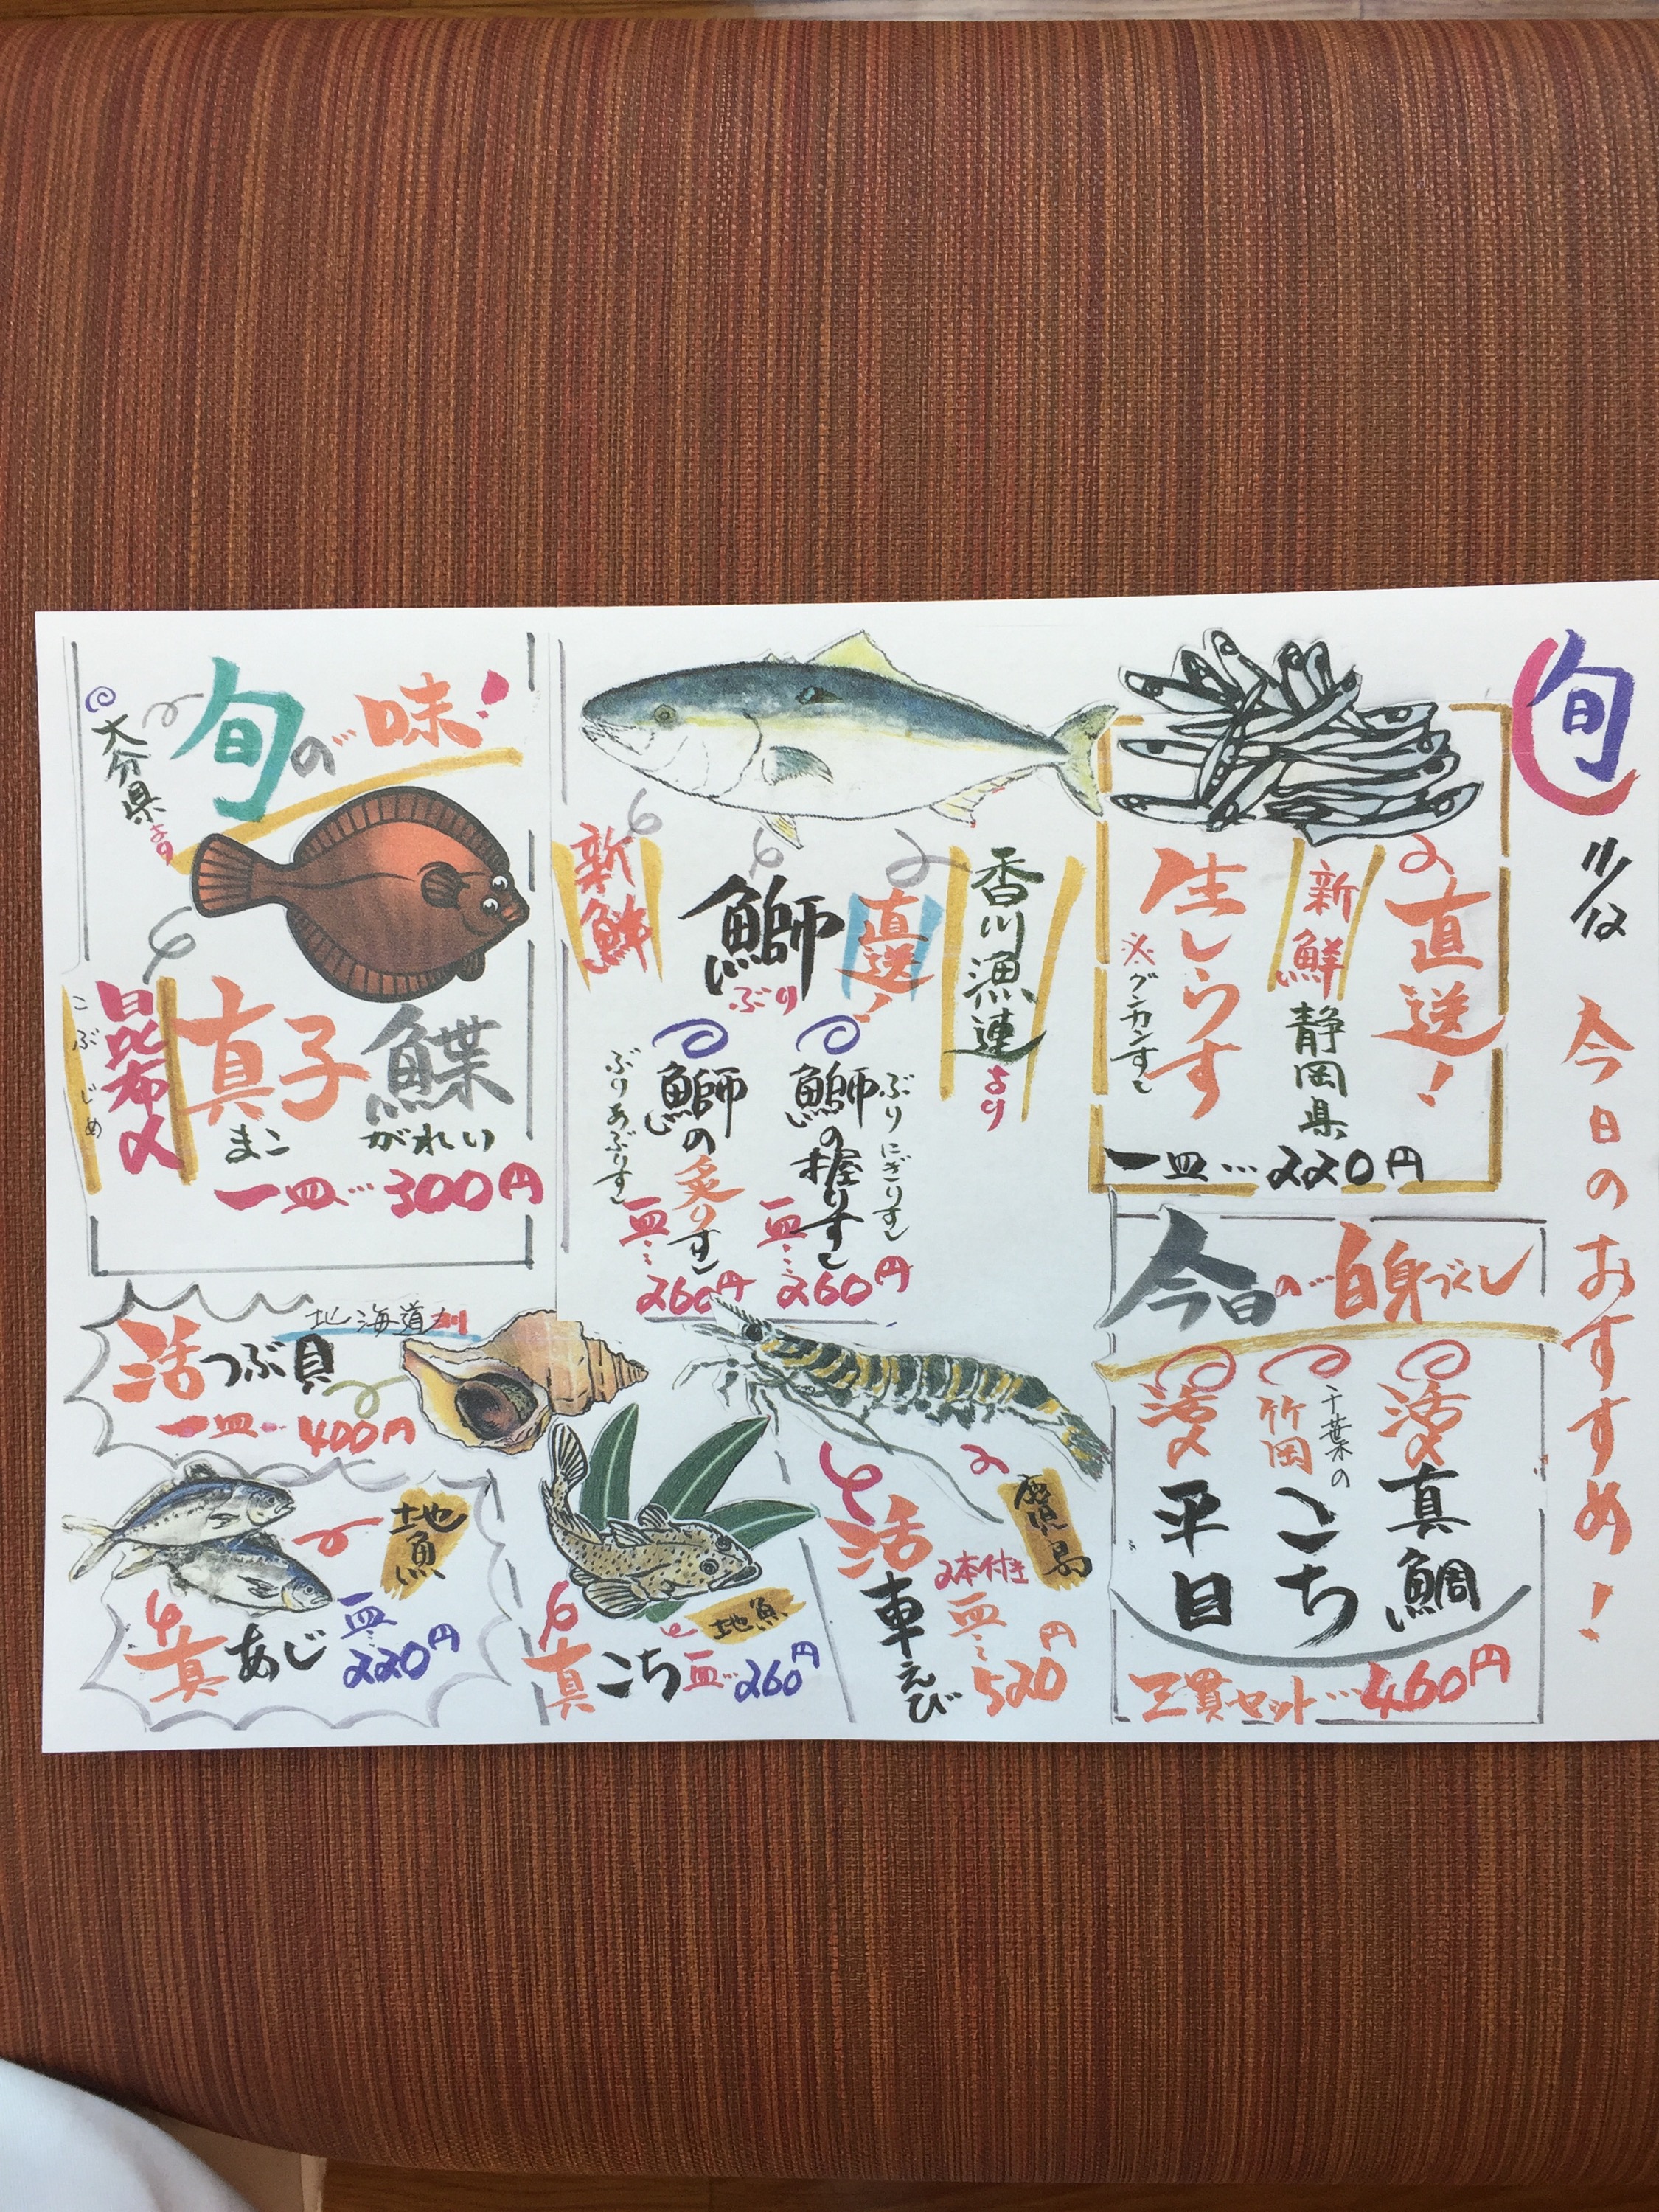 旬
11/12
今日のおすすめ!
直送!
新鮮
静岡県
生しらす
※グンカンすし
一皿…220円
今日の白身づくし
活〆
真鯛
千葉の
竹岡
こち
活〆
平目
三貫セット…460円
香川漁連より
直送!
鰤
ぶり
新鮮
ぶりにぎりすし
鰤の握りすし
一皿…260円
鰤の炙りすし
ぶりあぶりすし
一皿…260円
旬の味!
大分県より
真子鰈
まこがれい
昆布〆
こぶじめ
一皿…300円
活つぶ貝
一皿…400円
地魚
真あじ
一皿…220円
地魚
真こち
一皿…260円
鹿児島
活車えび
2本付き
一皿…520円